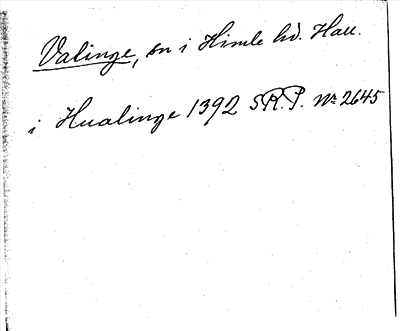 Valinge, sn i Himle hd. Hall.
i Hualinge 1392 SR.P. Nr 2645